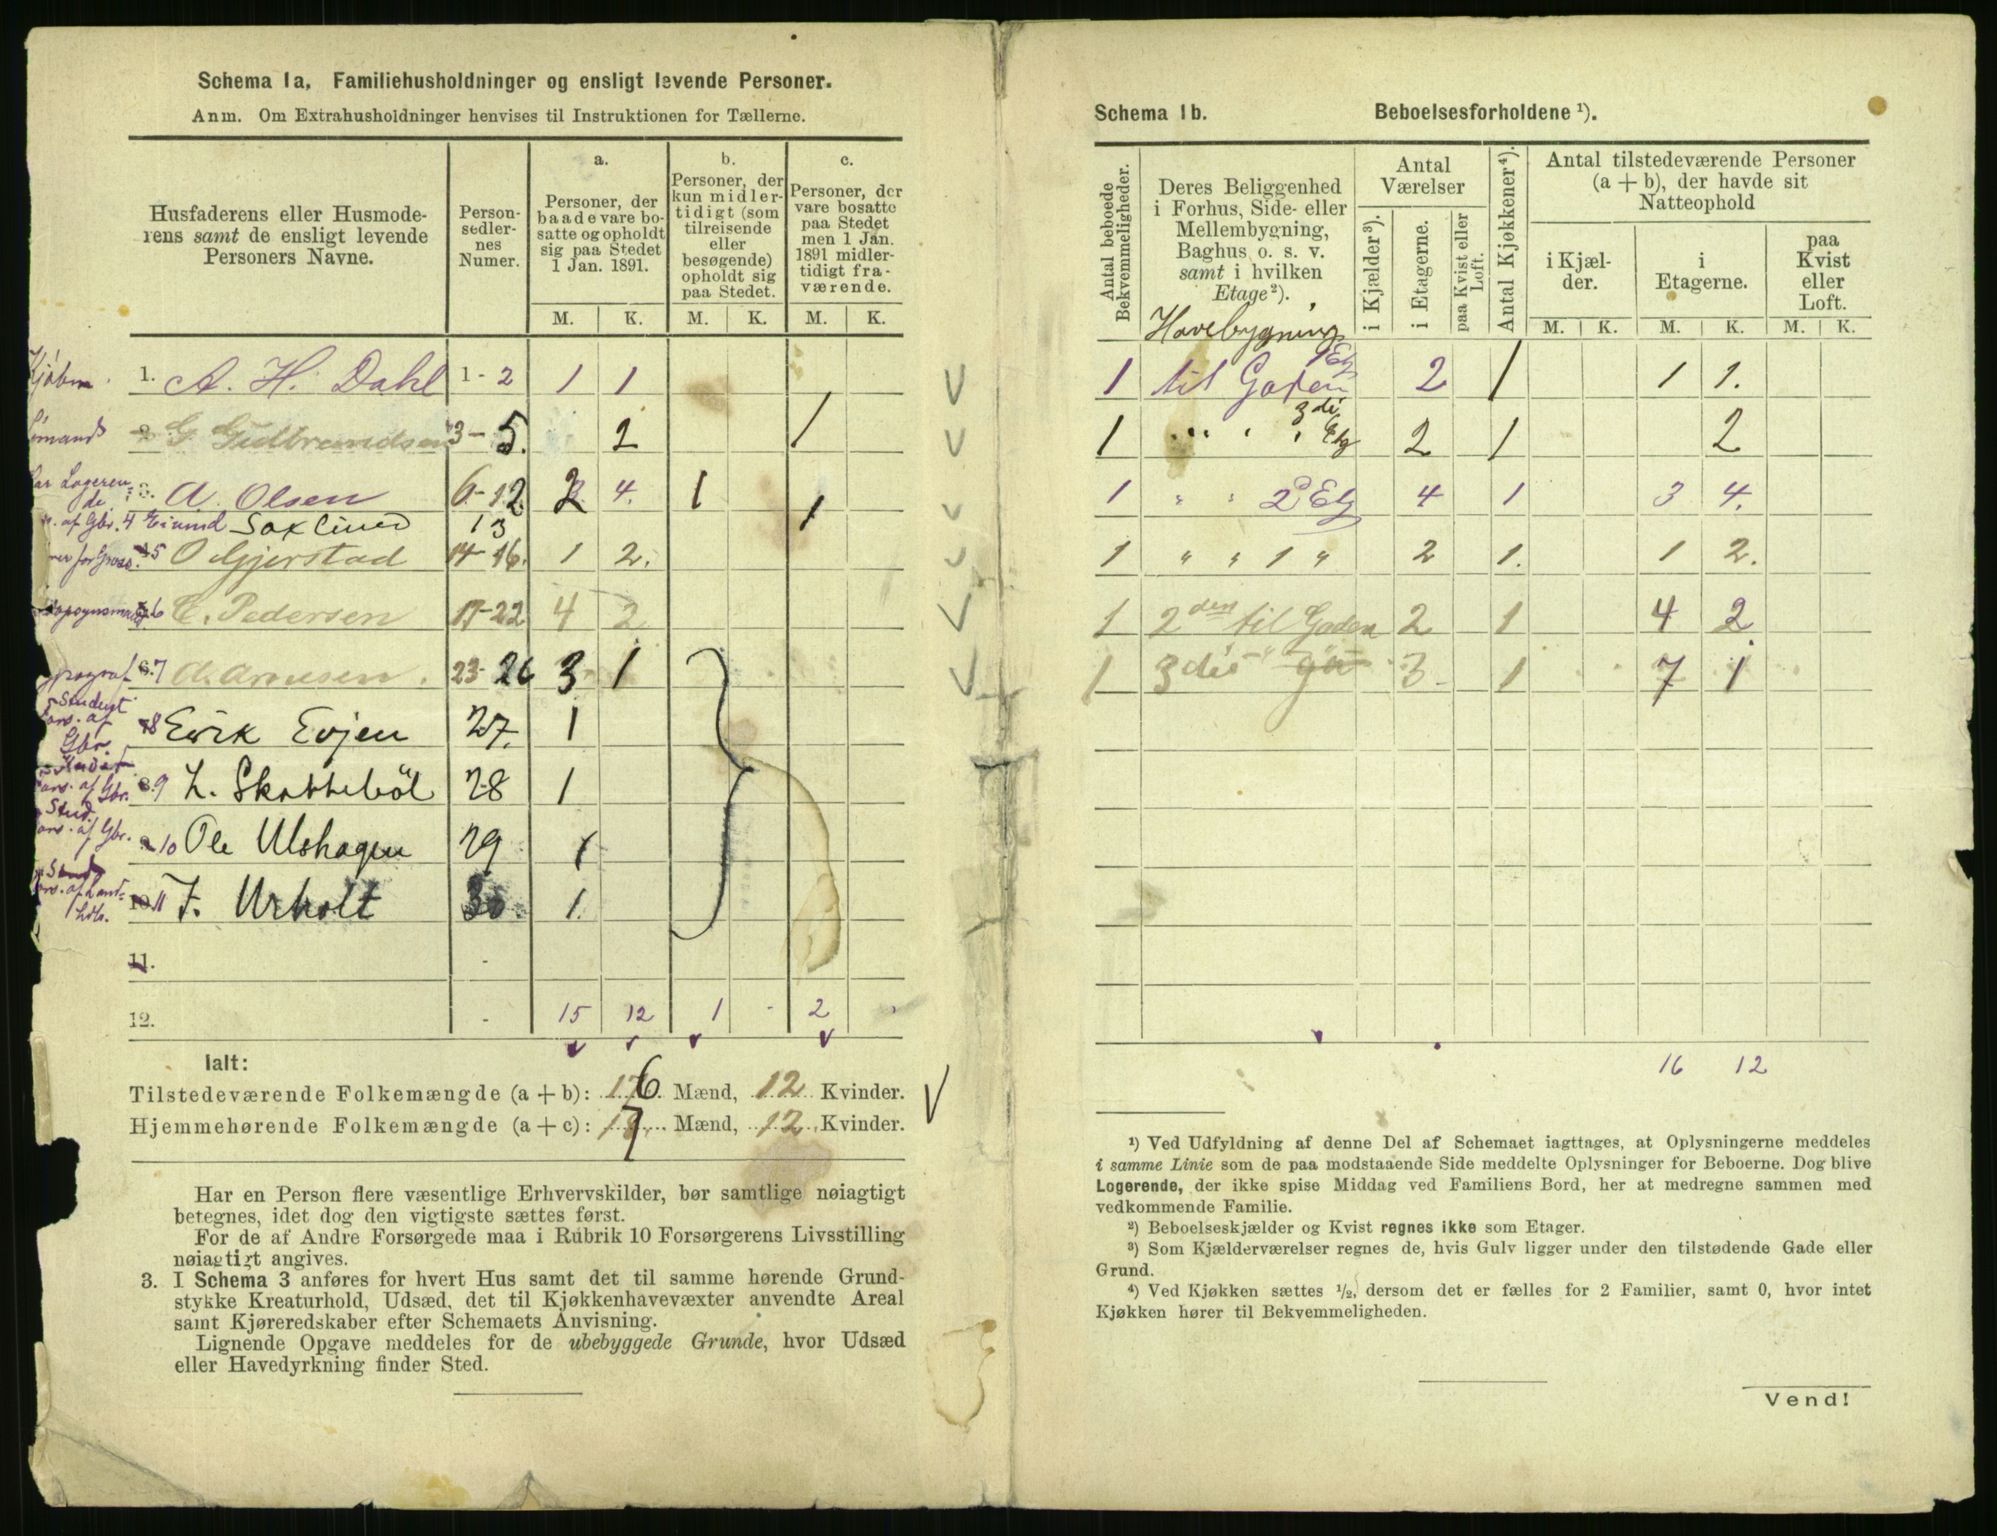 Schema 1a, Familiehusholdninger og ensligt levende Personer.
Anm. Om Extrahusholdninger henvises til Instruktionen for Tællerne.
Husfaderens eller Husmode-
rens samt de ensligt levende
Personers Navne.
Person-
sedler-
nes
Numer.
a.
Personer, der
baade vare bo-
satte og opholdt
sig paa Stedet
1 Jan. 1891.
b.
Personer, der
kun midler-
tidigt (som
tilreisende
eller
besøgende)
opholdt sig
paa Stedet.
c.
Personer, der
vare bosatte
paa Stedet
men 1 Jan.
1891 midler-
tidigt fra-
værende.
M. K. M. K. M. K.
1. A. H. Dahl 1-2 1 1
G. Gudbrandsen 3-5. 2 1
3. A. Olsen 6-12 2 4. 1
4 Eivind 13 1
5 O Gjerstad 14-16. 1 2.
6 C. Pedersen 17-22 4 2
7 A. Arnesen. 23-26 3 1
8 Erik Evjen 27. 1
9 L. Skattebøl 28 1
10 Ole Ulshagen 29 1
11 F. Urholt 30. 1.
11.
12. 15 12 1 - 2
Ialt:
Tilstedeværende Folkemængde (a + b): 16 Mænd, 12 Kvinder.
Hjemmehørende Folkemængde (a + c): 17 Mænd, 12 Kvinder.
Har en Person flere væsentlige Erhvervskilder, bør samtlige nøiagtigt
betegnes, idet dog den vigtigste sættes først.
For de af Andre Forsørgede maa i Rubrik 10 Forsørgerens Livsstilling
nøiagtigt angives.
3. I Schema 3 anføres for hvert Hus samt det til samme hørende Grund-
stykke Kreaturhold, Udsæd, det til Kjøkkenhavevæxter anvendte Areal
samt Kjøreredskaber efter Schemaets Anvisning.
Lignende Opgave meddeles for de ubebyggede Grunde, hvor Udsæd
eller Havedyrkning finder Sted.
Schema 1b. Beboelsesforholdene ¹).
Antal beboede
Bekvemmeligheder.
Deres Beliggenhed
i Forhus, Side- eller
Mellembygning,
Baghus o. s. v.
samt i hvilken
Etage²).
Antal
Værelser
i Kjælder³).
i Etagerne.
paa Kvist eller
Loft.
Antal Kjøkkener⁴).
Antal tilstedeværende Personer
(a + b), der havde sit
Natteophold
i Kjæl-
der.
i
Etagerne.
paa
Kvist
eller
Loft.
M. K. M. K. M. K.
Havebygning
1 til Gaden Etg 2 1 1 1.
1 " " " 3die Etg 2 1 2
1 " " 2 Etg 4 1 3 4.
1 " " 1 " 2 1. 1 2.
1 2den til Gaden 2 1 4 2.
1 3die " 3 1 7 1
16 12
¹) Ved Udfyldning af denne Del af Schemaet iagttages, at Oplysningerne meddeles
i samme Linie som de paa modstaaende Side meddelte Oplysninger for Beboerne. Dog blive
Logerende, der ikke spise Middag ved Familiens Bord, her at medregne sammen med
vedkommende Familie.
²) Beboelseskjælder og Kvist regnes ikke som Etager.
³) Som Kjælderværelser regnes de, hvis Gulv ligger under den tilstødende Gade eller
Grund.
⁴) Ved Kjøkken sættes ½, dersom det er fælles for 2 Familier, samt 0, hvor intet
Kjøkken hører til Bekvemmeligheden.
Vend!